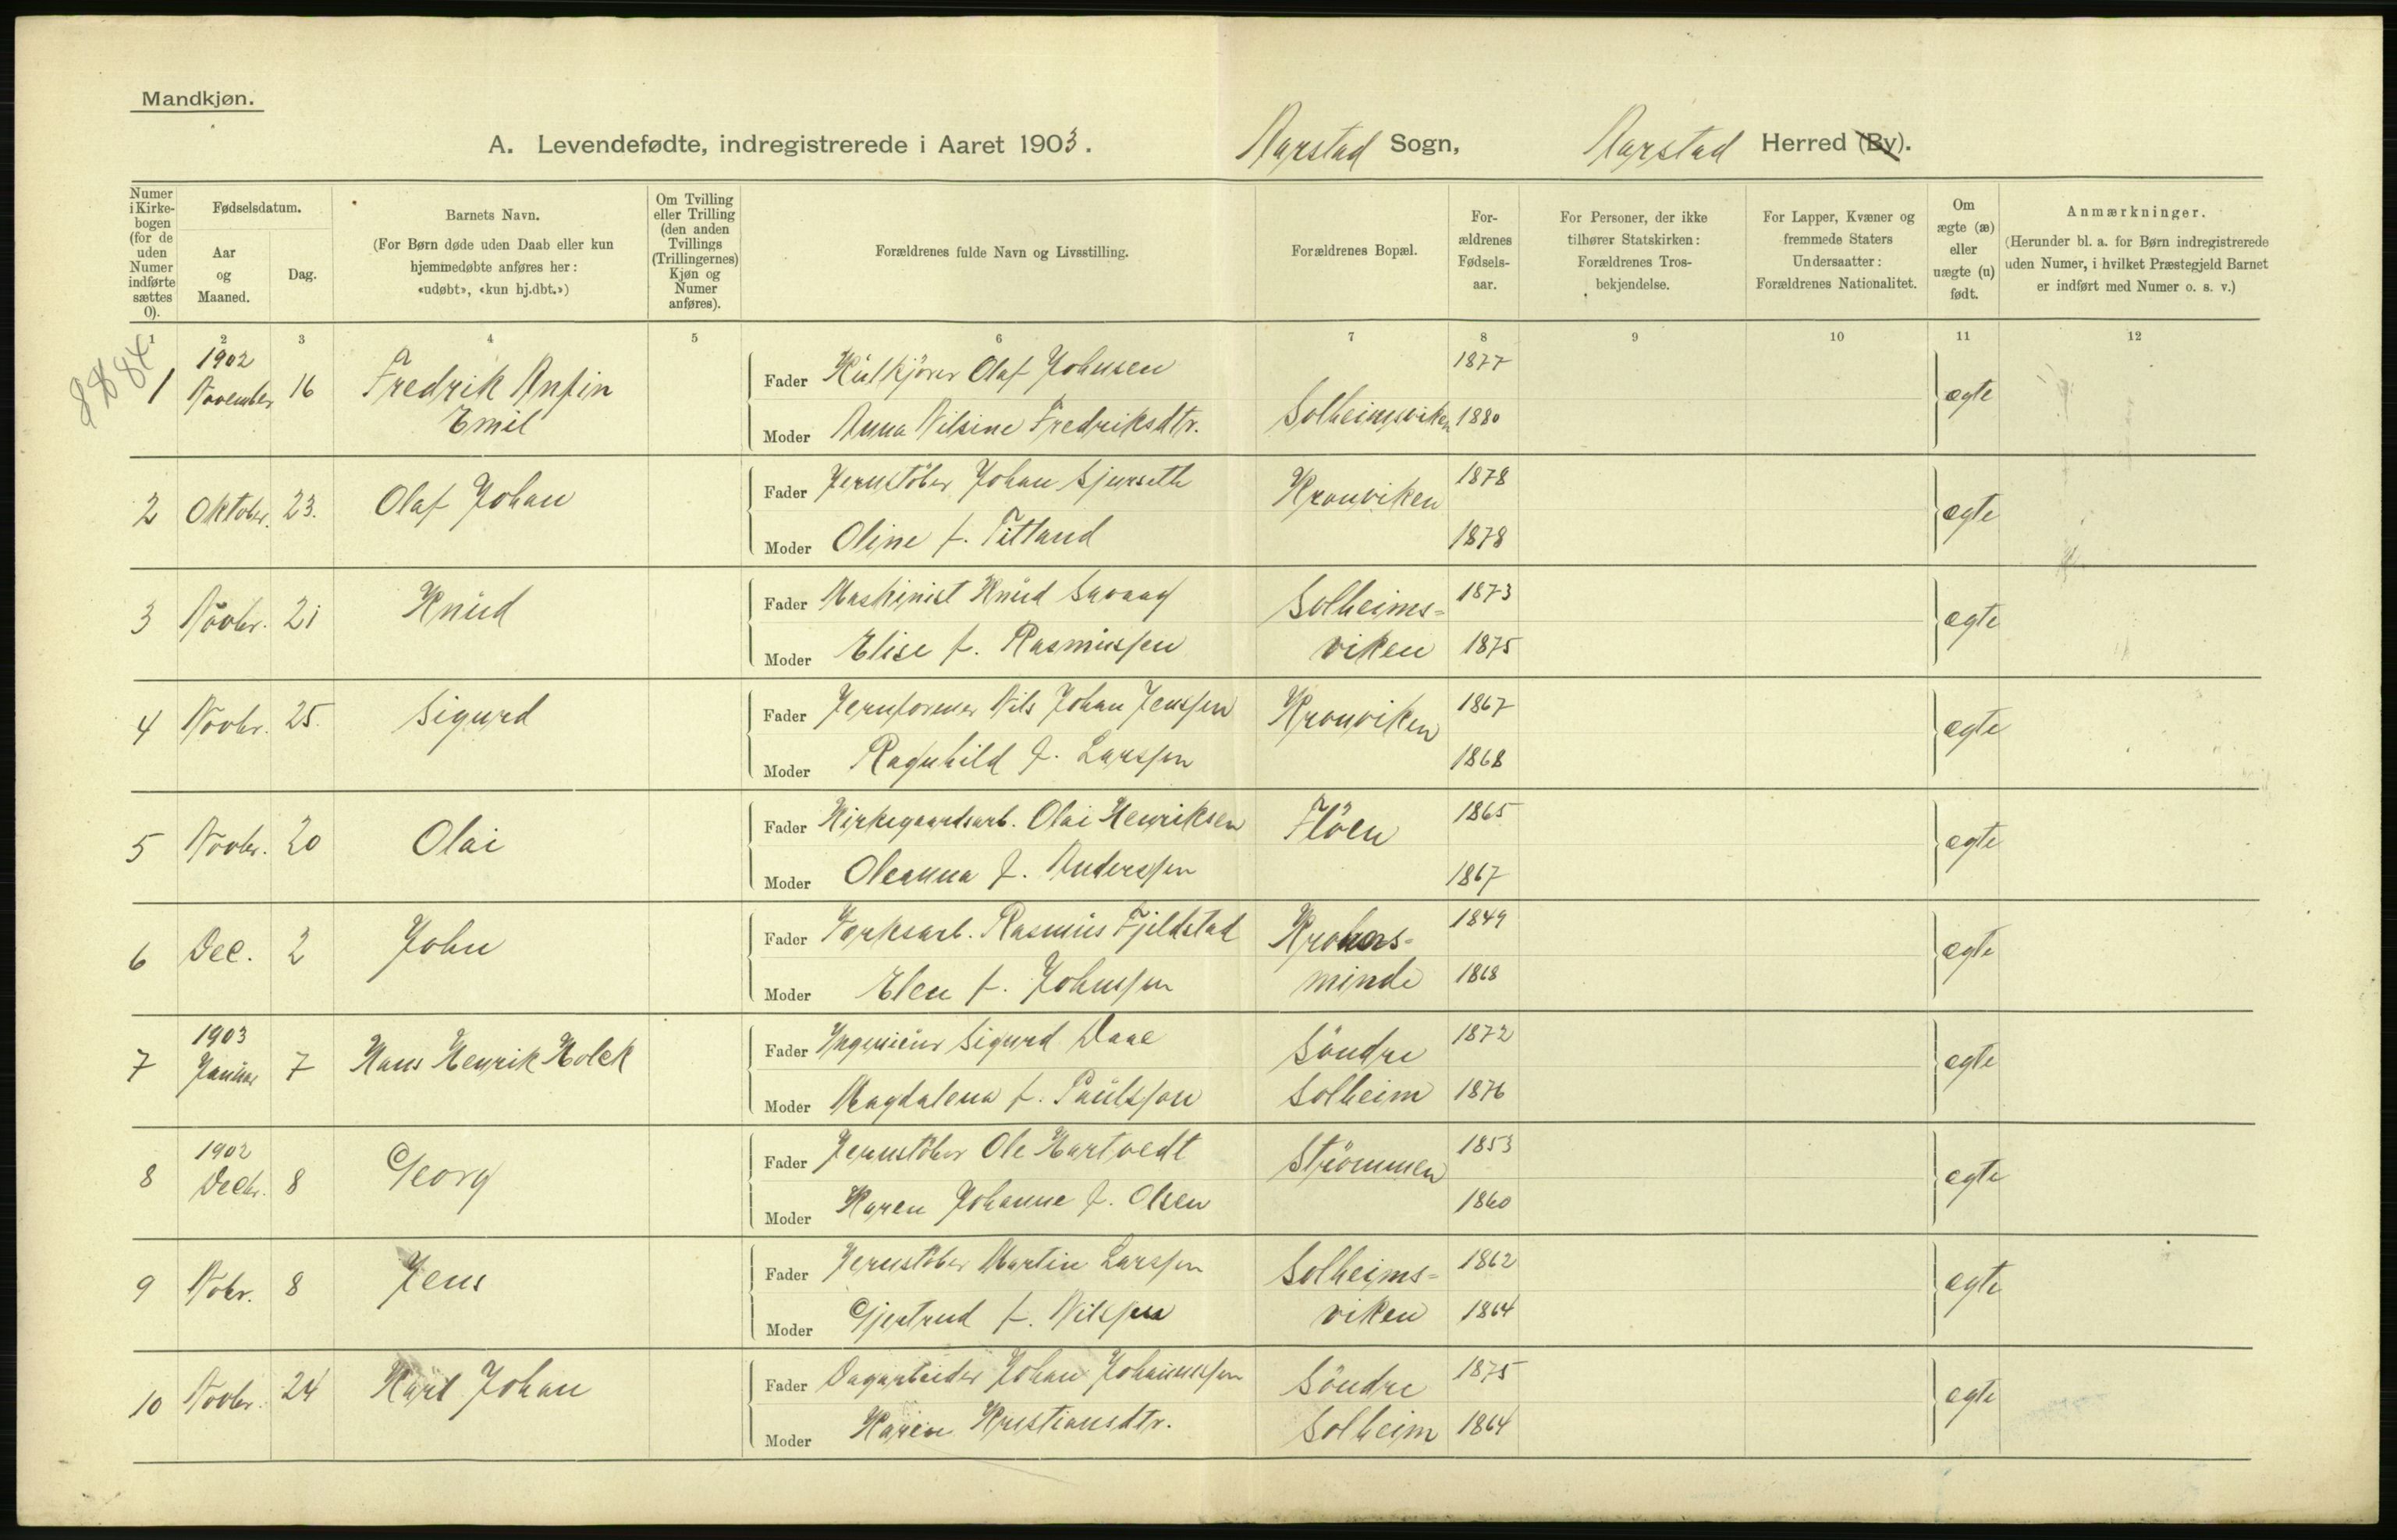 Mandkjøn.
A. Levendefødte, indregistrerede i Aaret 1903. Aarstad Sogn, Aarstad Herred (By).
Numer i Kirkebogen (for de uden Numer indførte sættes 0).
Fødselsdatum.
Aar og Maaned.
Dag.
Barnets Navn.
(For Børn døde uden Daab eller kun hjemmedøbte anføres her: «udøbt», «kun hj.dbt.»)
Om Tvilling eller Trilling (den anden Tvillings (Trillingernes) Kjøn og Numer anføres).
Forældrenes fulde Navn og Livsstilling.
Forældrenes Bopæl.
Forældrenes Fødselsaar.
For Personer, der ikke tilhører Statskirken: Forældrenes Trosbekjendelse.
For Lapper, Kvæner og fremmede Staters Undersaatter: Forældrenes Nationalitet.
Om ægte (æ) eller uægte (u) født.
Anmærkninger.
(Herunder bl. a. for Børn indregistrerede uden Numer, i hvilket Præstegjeld Barnet er indført med Numer o. s. v.)
1 2 3 4 5 6 7 8 9 10 11 12
1 1902 November 16 Fredrik Anfin Emil Fader Kulkjører Olaf Johnsen 1877
Moder Anna Nilsine Fredriksdtr. Solheimsviken 1880 ægte
2 Oktober. 23. Olaf Johan Fader Jernstöber Johan Sjurseth Kronviken 1878
Moder Oline f. Titland 1878 ægte
3 Novbr. 21 Knud Fader Maskinist Knud Savaag Solheims= 1873
Moder Elise f. Rasmussen viken 1875 ægte
4 Novbr. 25. Sigurd Fader Jernformer Nils Johan Jenssen Kronviken 1867
Moder Ragnhild f. Larssen 1868 ægte
5 Novbr. 20 Olai Fader Kirkegaardsarb. Olai Henriksen Flöen 1865
Moder Oleanna f. Anderssen 1867 ægte
6 Dec. 2 John Fader Værksarb. Rasmus Fjeldstad Krohns= 1849
Moder Elen f. Johnssen minde 1868 ægte
7 1903 Januar 7 Hans Henrik Holck Fader Ingenieur Sigurd Daae Söndre 1872
Moder Magdalena f. Paulsson Solheim 1876 ægte
8 1902 Decbr. 8 Georg Fader Jernstöber Ole Hartvedt Strömmen 1853
Moder Karen Johanne f. Olsen 1860 ægte
9 Nobr. 8 Jens Fader Jernstöber Martin Larssen Solheims= 1862
Moder Gjertrud f. Nilssen viken 1864 ægte
10 Novbr. 24 Karl Johan Fader Dagarbeider Johan Johannessen Söndre 1875
Moder Karen Kristiansdtr. Solheim 1864 ægte